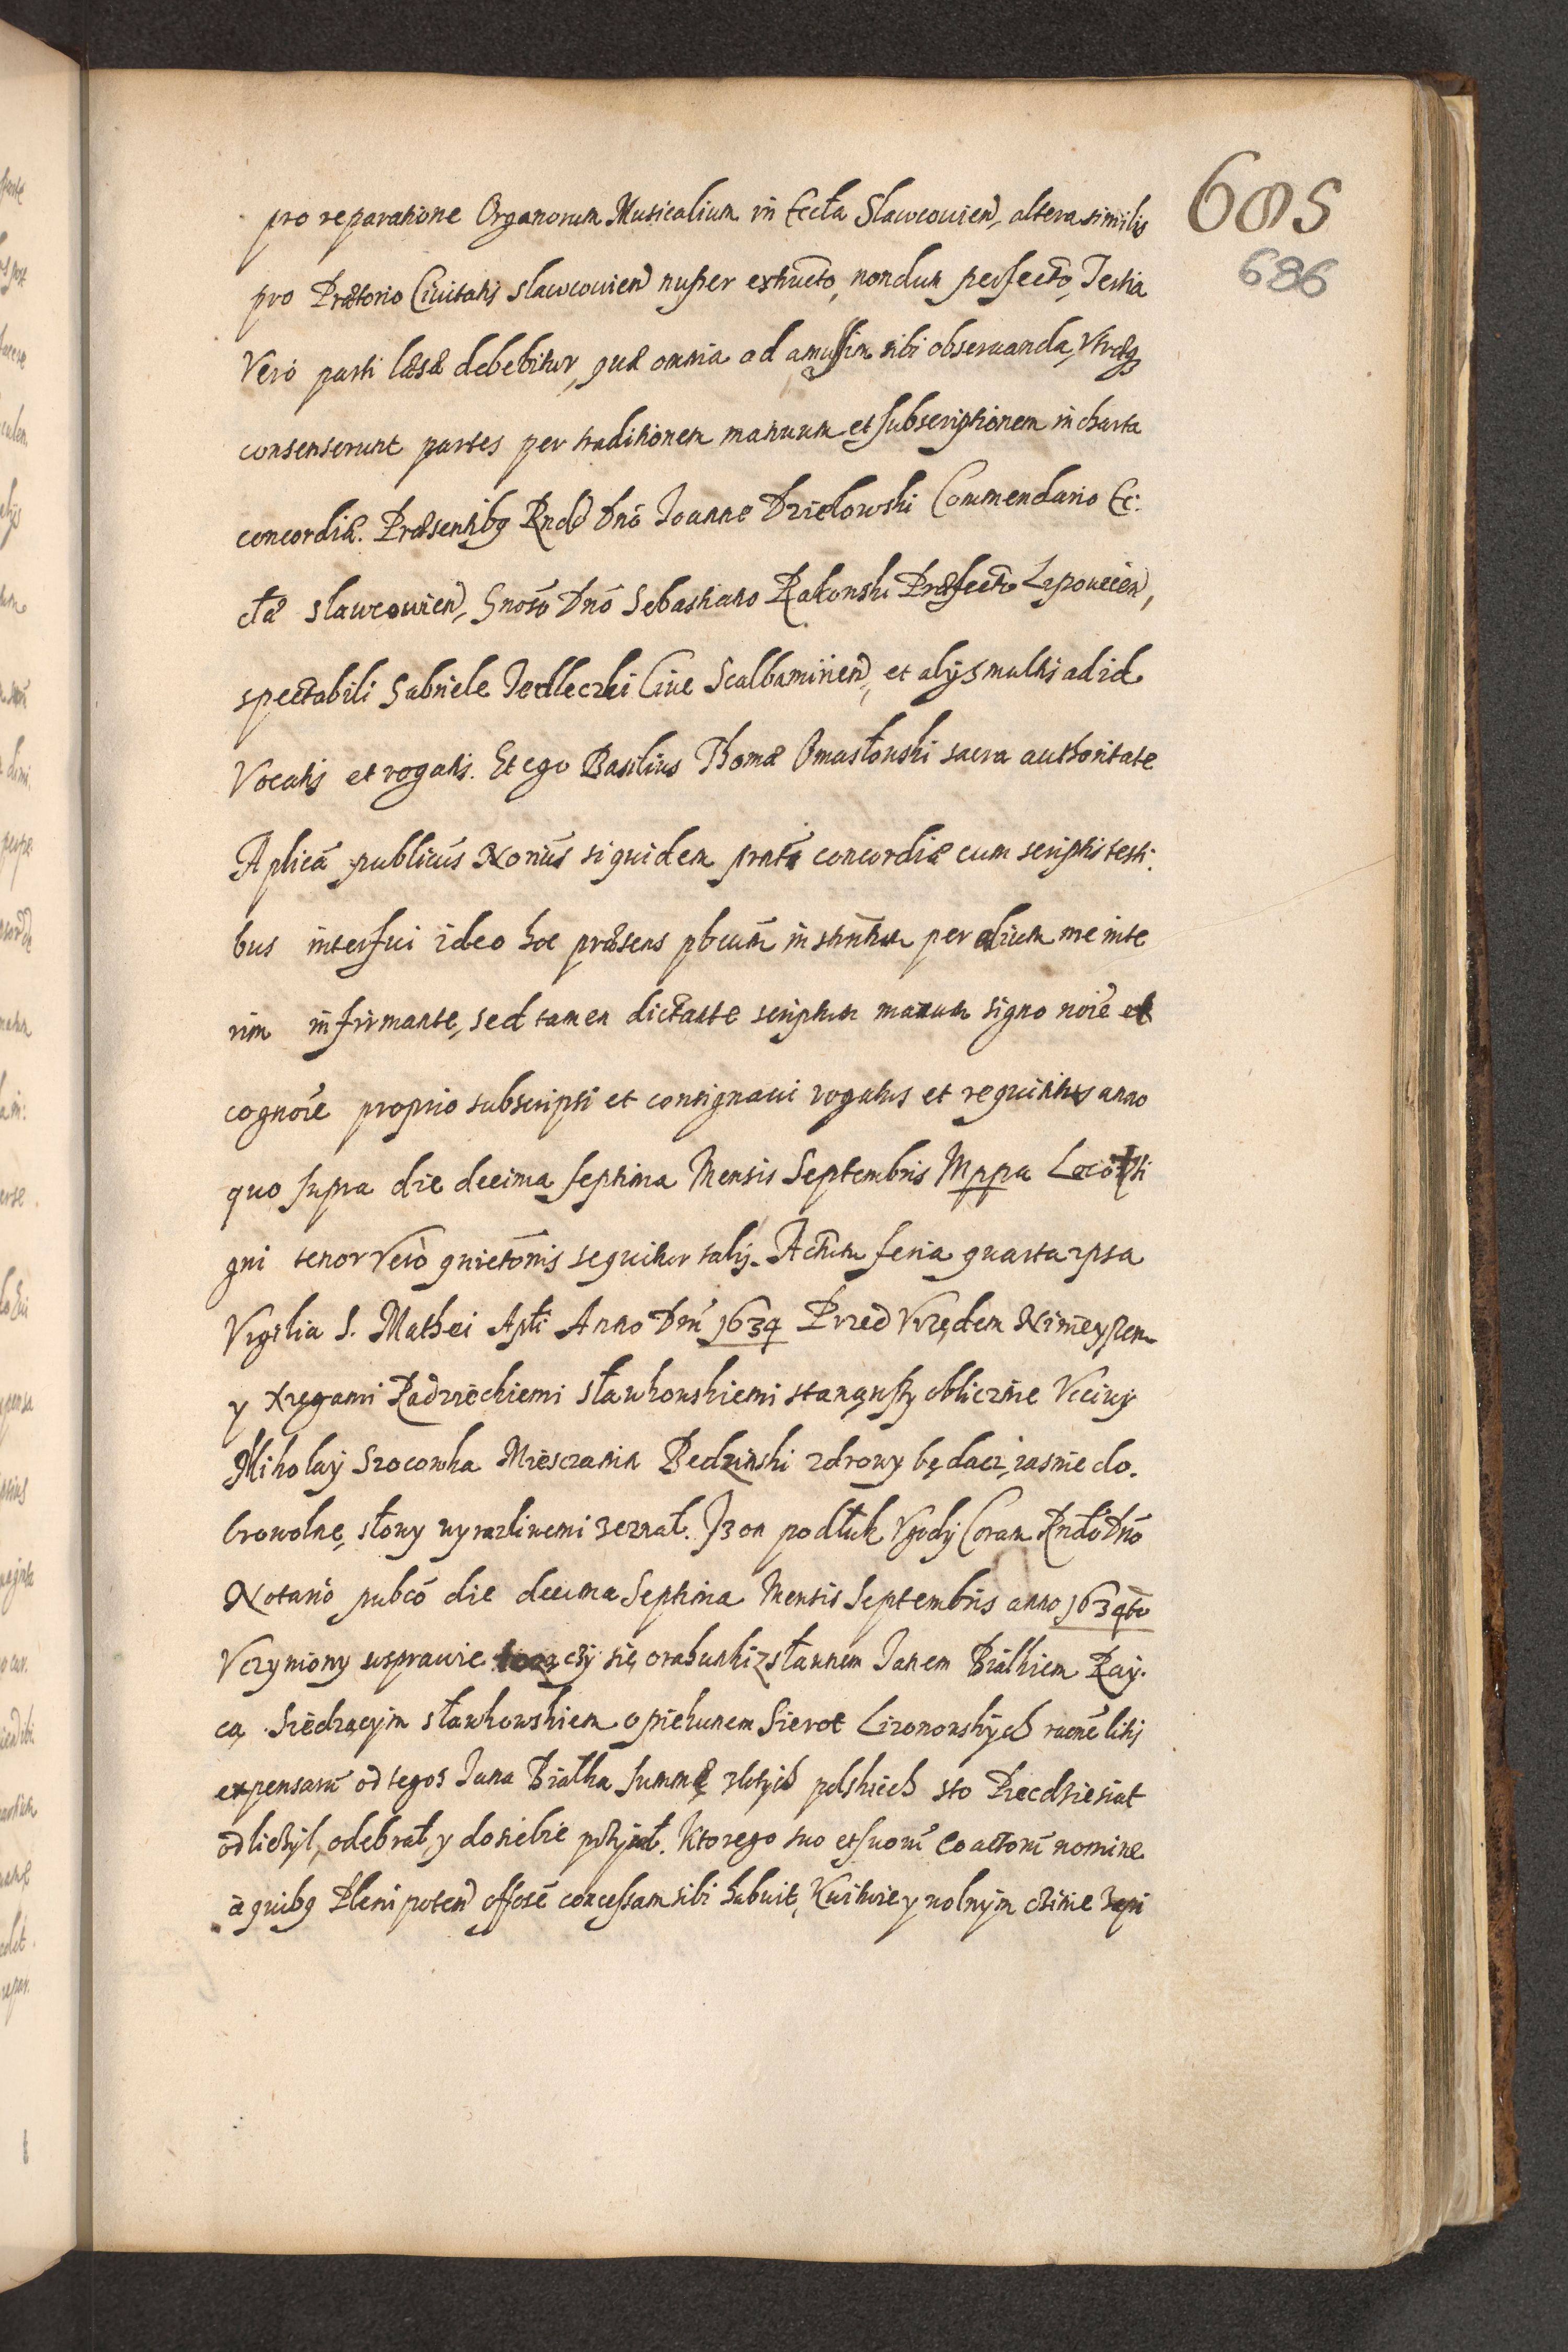 685
686
pro reparatione Organorum Musicalium in Eccła Slawcouień, altera similis
pro Prætorio Ciuitatis Slawcouień nuper extructo, nondum perfecto, Tertia
Vero parti læsæ debebitur, quæ omnia ad amussim sibi obseruanda, Vtræq3
consenserunt partes per traditionem manuum et subscriptionem in charta
concordiæ. Præsentibq Rndo Dno Joanne Dzielowski Commendario Ec:
cłæ Slawcouień, Gnoso Dno Sebastiano Rakonski Præfecto Lepouecień,
spectabili Gabriele Jedleczki Ciue Scalbamirień, et alijs multis ad id
Vocatis et rogatis. Et ego Basilius Thomæ Omastowski sacra authoritate
Aplica publicus Norius siquidem prnti concordiæ cum scriptis testi.
bus interfui ideo hoc præsens pbcum instrntum per alium me inte
rim infirmante, sed tamen dictante scriptum manum signo noie et
cognoie proprio subscripsi et consignaui rogatus et requisitus anno
quo supra die decima septima Mensis Septembris Mppa Loco Si
gni tenor Vero quietonis sequitur talis. Actum feria quarta ipsa
Vigilia S. Mathei Apłi Anno Dni 1634 Przed Vrzędem Ninieyszem
y Xręgami Radzieckiemi Sławkowskiemi stanąwszy oblicznie Vcciwy
Mikołay Szocowka Miesczanin Bedzinski zdrowy będacz, iasnie do.
browolne, słowy wyrazliwemi zeznał. Jz on podłuk Vgody Coram Rndo Dno
Notario pubco die decima Septima Mensis Septembris anno 1634to
Vczyniony wsprawie toczączy się orabunki z sławnem Janem Białkiem Ray.
cą Siedzącym Sławkowskiem opiekunem Sierot Lizonowskych raone litis
expensarum od tegosz Jana Białka summę złotych polskiech sto Piecdziesiat
odliczył, odebrał, y dosiebie prziął. Ktorego suo et suorum Coactorum nomine
à quibq Plenipoten offose concessam sibi habuit, Kwituie y wolnym czinie